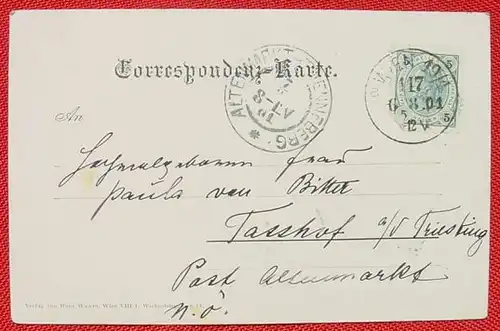 Correspondenz-Karte.
ALTENMARKT
8-9V
01
17
8.01
12V
5
5
An
Hochwolgeboren Frau
Paula von
Tasshof a/d Triesting
Post Altenmarkt
N.Ö.
Verlag von Wien VIII/1,